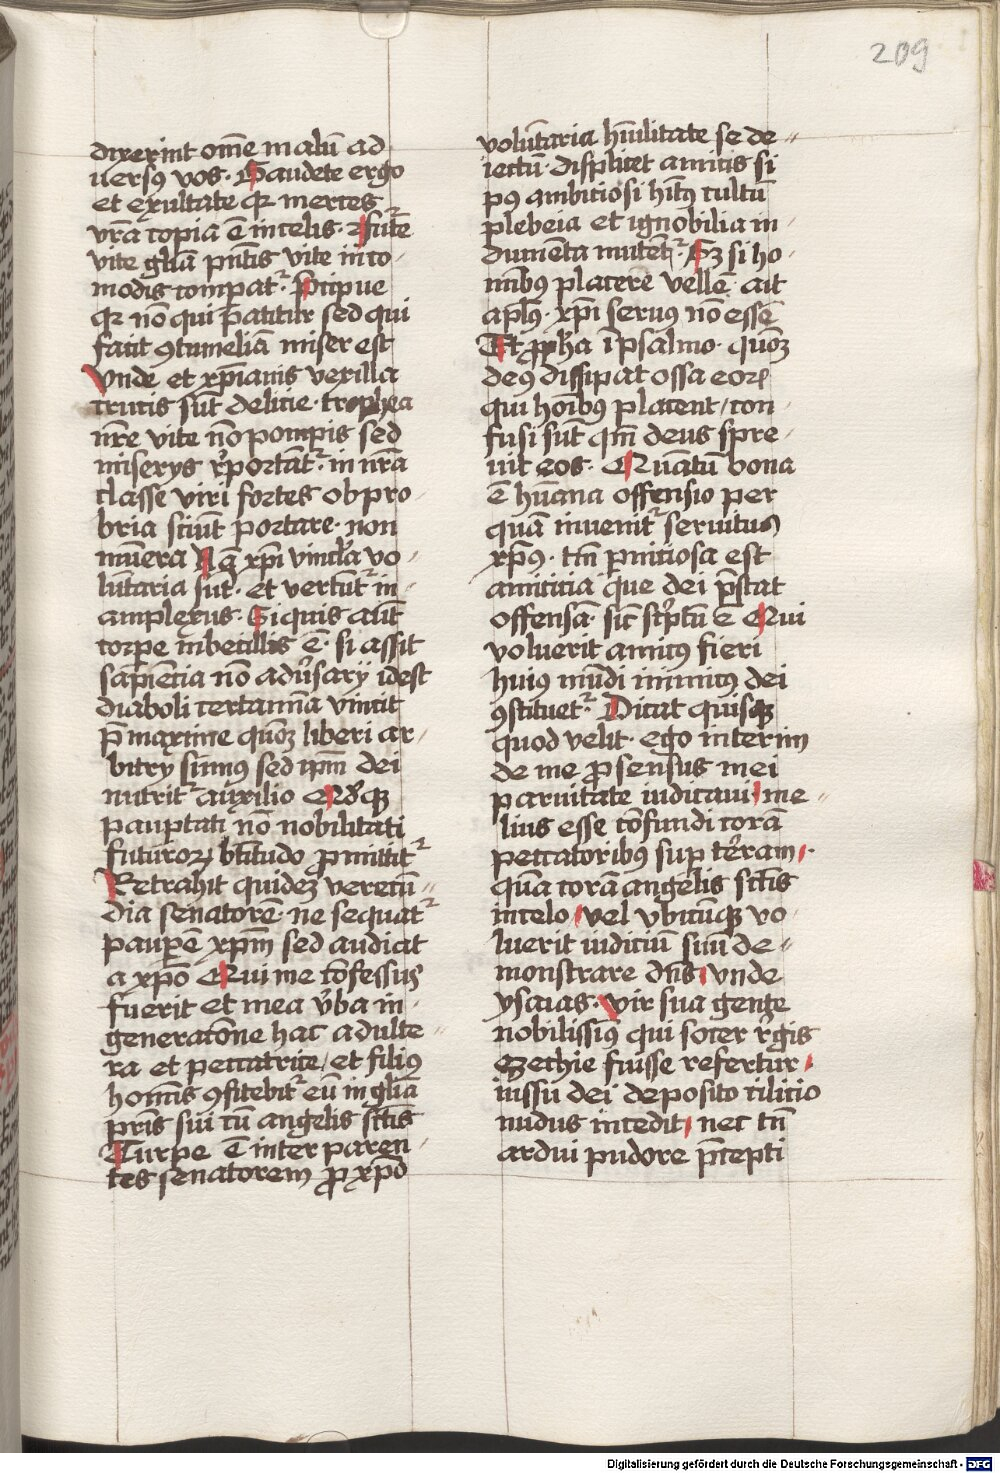 209
dixerint om̄e malū ad
uersꝰ vos. Gaudete ergo
et exultate qꝛ merces
vr̄a copia ē in celis. Insūt̄e
vite gl̄iā pn̄tis vite inco-
modis comꝑat᷑. Precipue
qꝛ nō qui p̄atitur sed qui
facit ꝯtumeliā miser est
Vnde et xp̄ianis vexilla
crucis sūt delicie. trophea
nr̄e vite nō pompis sed
miserys rͤportāt᷑. in nr̄a
classe viri fortes obpro-
bria sciūt portare. non
mūera Nā xp̄i vincl̓a vo-
lūtaria sūt. et vertūt᷑ in
amplexus. Si quis aūt
corpe inbecillis ē. si assit
sapiēcia nō adu̓sarÿ idest
diaboli certamīa vincit
p̄ maxime quōꝫ liberi ar-
bitrÿ simus sed ip̄m dei
nutrit᷑ auxilio Adͦꝙ
pauꝑtati nō nobilitati
futuroꝝ bt̄itudo ꝓmittit᷑
Retrahit quidez verecū-
dia senatorē. ne sequat᷑
pauꝑē xp̄m sed audiat
a xp̄o Qui me cōfessus
fuerit et mea v̓ba in-
generatōne hac adulte-
ra et peccatrice/ et filiꝰ
homīs ꝯfitebit᷑ eū in gl̄iā
pr̄is sui cū angelis sc̄tis
Turpe ē inter paren-
tes senatorem ꝓ xp̄o
volūtaria hūilitate se de-
iectū. displicet amicis si
pꝰ ambiciosi hītꝰ cultū
plebeia et ignobilia in-
dumēta mutet᷑. Sꝫ si ho-
nībꝰ placere vellē. ait
apl̄s. xp̄i seruꝰ nō essē
Et ꝓph̓a ī psalmo. quōꝫ
deꝰ dissipat ossa eoꝝ
qui hoībꝰ placent/ con-
fusi sūt qm̄ deus spre-
uit eos. Quātū bona
ē hūana offensio per
quā invenit᷑ seruitus
xp̄ꝰ. tn̄ ꝑniciosa est
amicicia que dei p̄stat
offensā. sic̄ sc͛ptū ē Qui
voluerit amicꝰ fieri
huiꝰ mūdi inimicꝰ dei
ꝯstituet᷑. Dicat quisꝙ
quod velit. ego interim
de me ꝓ sensus mei
paruitate iudicaui/ me-
lius esse cōfundi corā
peccatoribꝰ suꝑ te̓ram/.
quā corā angelis sc̄tis
in celo/ vel vbicūꝙ vo-
luerit iudiciū suū de-
monstrare dn̄s/ vnde
ysaias. vir sua gente
nobilissiꝰ qui socer rͤgis
ezechie fuisse refertur/
iussu dei deposito cilicio
nudus incedit/ nec tn̄
ardui pudore p̄cepti
Digitalisierung gefördert durch die Deutsche Forschungsgemeinschaft - DFG